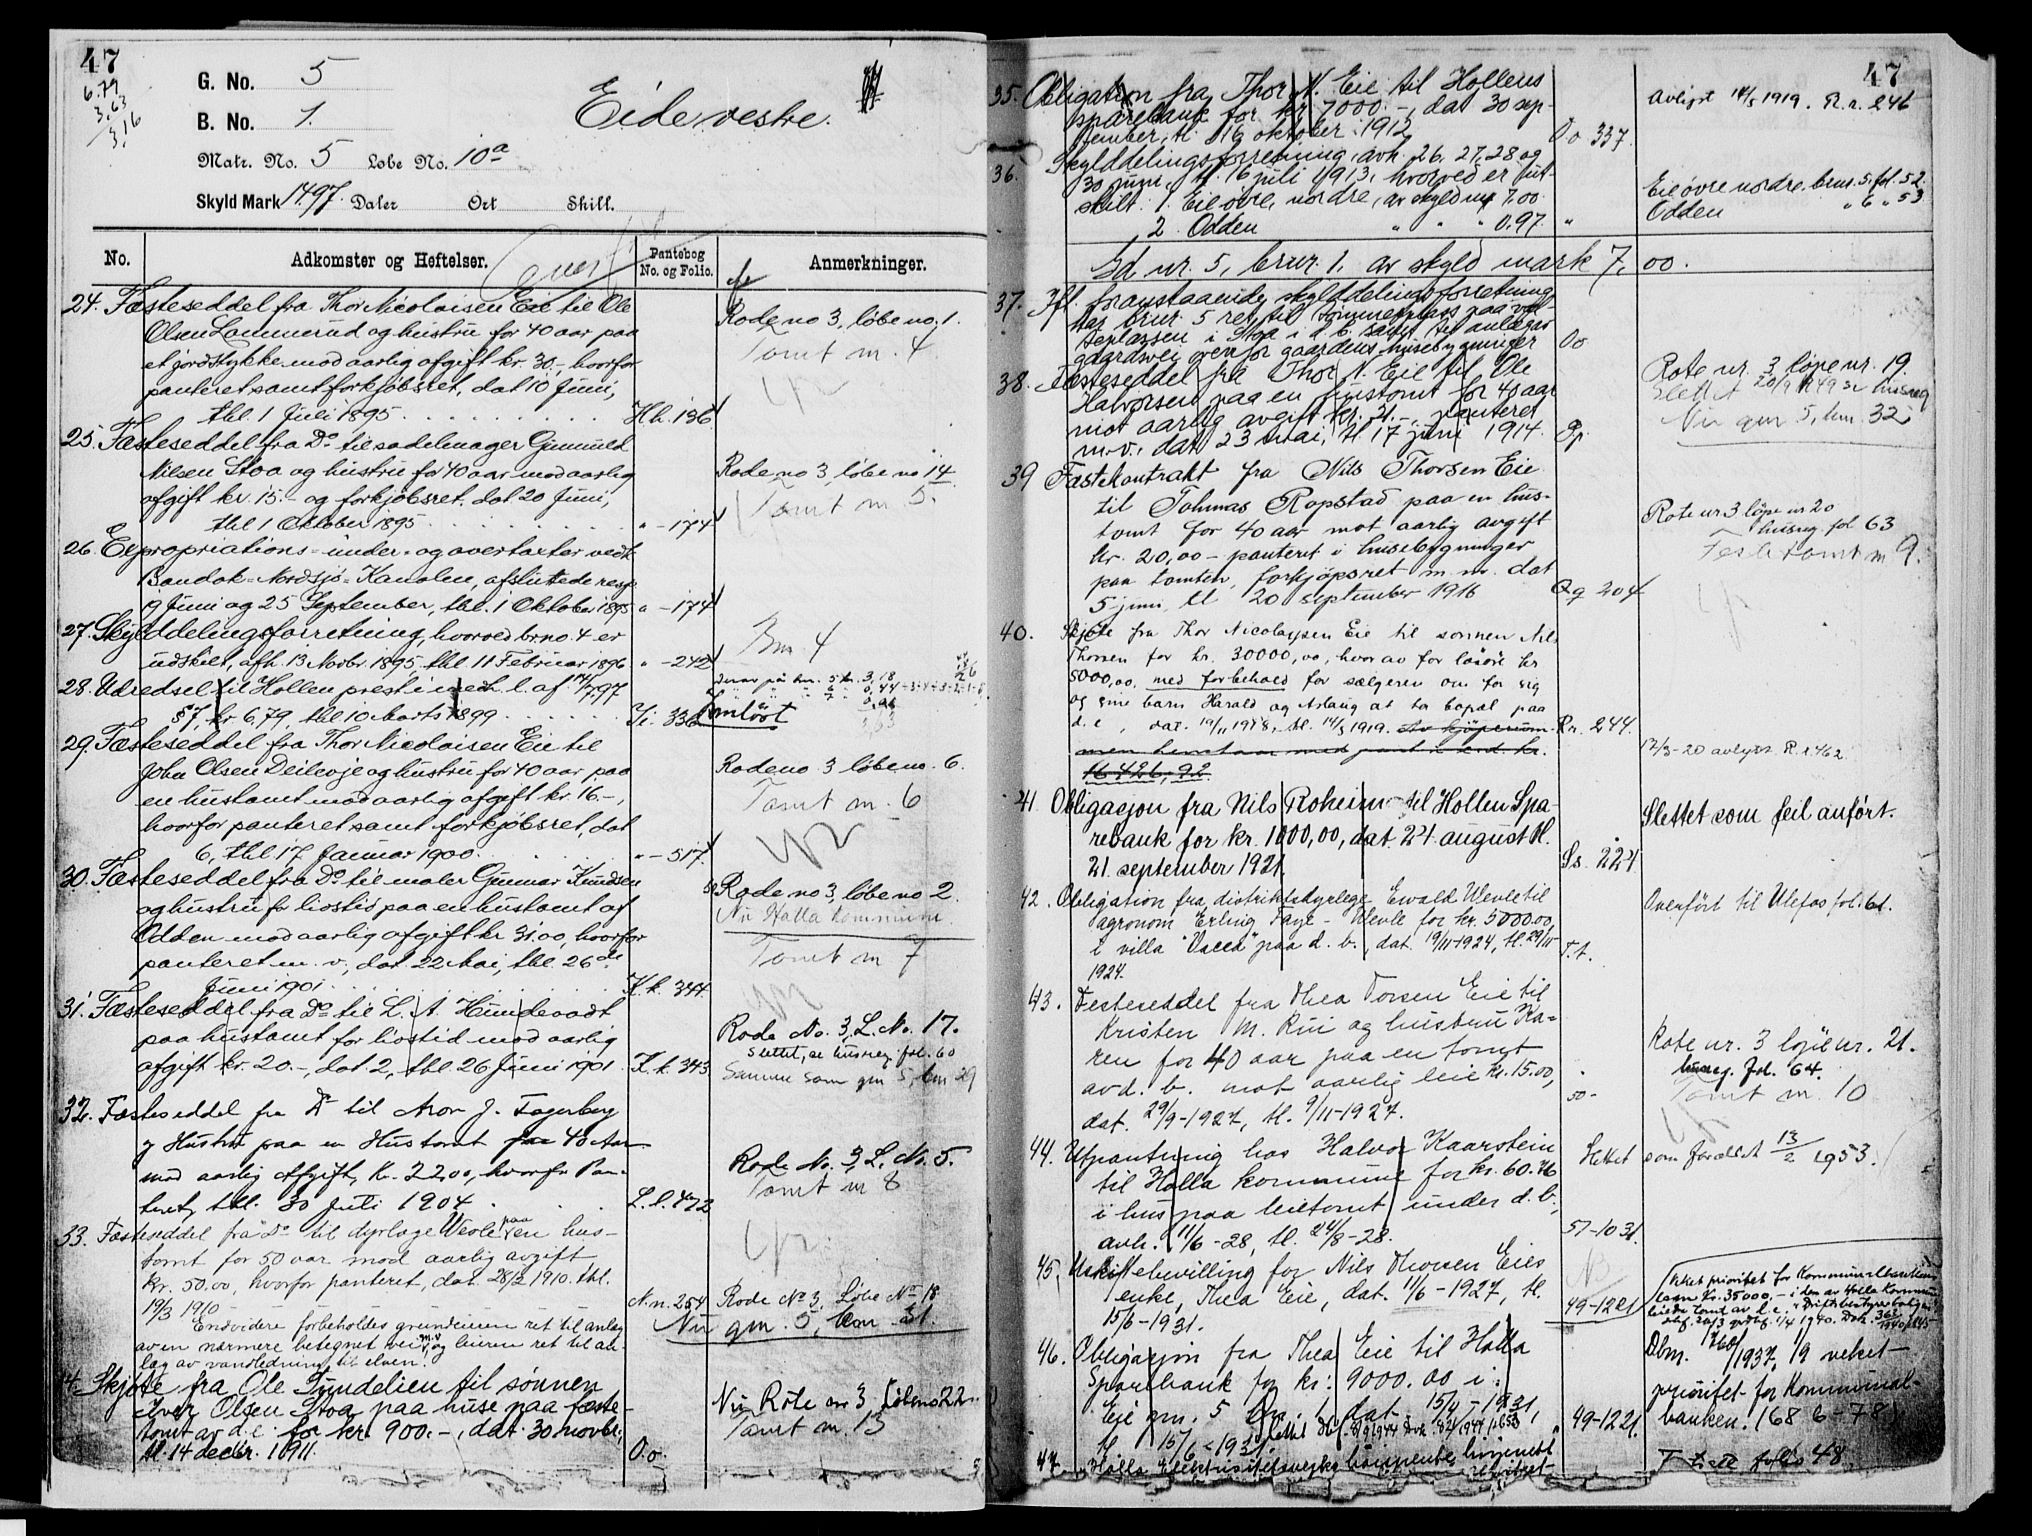 47
6.79
3.63
3.16
G. No. 5
B. No. 1.
Matr. No. 5 Løbe No. 10a
Skyld Mark 14.97. Daler Ort Skill.
Eide vestre.
No.
Adkomster og Heftelser.
Pantebog
No. og Folio.
Anmerkninger.
24. Fæsteseddel fra Thor Nicolaisen Eie til Ole
Olsen Lammerud og hustru for 40 aar paa
et jordstykke mod aarlig afgift kr. 30,-, hvorfor
panteret samt forkjøbsret, dat 10 Juni,
tbl. 1 Juli 1895. Hh. 136
Rode no 3, løbe no. 1.
Tomt nr. 4.
25. Fæsteseddel fra Do til sadelmager Gunnuld
Nilsen Stoa og hustru for 40 aar mod aarlig
afgift kr. 15.- og forkjøbsret, dat 20 Juni,
tbl 1 Oktober 1895 " - 174
Rode no 3, løbe no 14
Tomt nr 5.
26. Expropriations-under- og overtaxter vedk.
Bandak-Nordsjø-Kanalen, afsluttede resp.
19 Juni og 25 September, tbl. 1 Oktober 1895 " - 174
27. Skylddelingsforretning, hvorved brno. 4 er
udskilt, afh. 13 Novbr. 1895, tbl 11 Februar 1896 " - 242
Bnr 4
28. Udredsel til Hollen prest i medh. l. af 14/7 97
§ 7, kr 6,79, tbl 10 Marts 1899 Ii. 336
Innløst
29. Fæsteseddel fra Thor Nicolaisen Eie til
John Olsen Deilevje og hustru for 40 aar paa
en hustomt mod aarlig afgift kr. 16.-,
hvorfor panteret samt forkjøbsret, dat
6, tbl 17 Januar 1900. " - 517.
Rode no 3 løbe no. 6.
Tomt nr. 6
30. Fæsteseddel fra Do til maler Gunnar Knudsen
og hustru for livstid paa en hustomt af
Odden mod aarlig afgift kr 31.00, hvorfor
panteret m. v., dat. 22 Mai, tbl. 26de
Juni 1901. K.k. 344
Rode no 3, løbe no 2.
Nu Holla kommune.
Tomt nr 7
31. Fæsteseddel fra Do til L. A. Hundevadt
paa hustomt for livstid mod aarlig
afgift kr. 20.-, dat. 2, tbl. 26 Juni 1901 K.k. 343
Rode No. 3, L. No. 17.
Slettet, se husreg. fol. 60
Samme som gnr 5, bnr 29
32. Fæsteseddel fra Do til Aron J. Fagerberg
og Hustru paa en Hustomt paa 40 Aar
mod aarlig Afgift, Kr. 22.00, hvorfor Pan-
teret, tbl. 30 Juli 1904. L.l. 472
Rode No. 3, L. No. 5.
Tomt nr 8
33. Fæsteseddel fra Do til dyrlæge Wevle paa en hus-
tomt for 50 aar mod aarlig avgift
kr. 50.00, hvorfor panteret, dat. 28/2 1910. tbl.
19/3 1910 N.n. 254
Endvidere forbeholdes grundeieren ret til anlæg
av en nærmere betegnet vei m.v. og leieren ret til an-
læg av vandledning til elven.
Rode No 3, Løbe No 18
Nu gnr. 5, bnr 31.
34. Skjøte fra Ole Sundelien til sønnen
Iver Olsen Stoa paa huse paa fæste-
tomt av d. e. for kr. 900.-, dat. 30 novbr.,
tl. 14 decbr. 1911. O.o.
Nu Rote nr 3, Løbe no 22
Tomt nr. 13
47
35. Obligation fra Thor N. Eie til Hollens
sparebank for kr. 7000.-, dat 30 sep-
tember, tl. 16 oktober 1912 Oo 337.
Avlyst 14/5 1919. R.r. 246
36. Skylddelingsforretning, avh. 26, 27, 28 og
30 juni, tl. 16 juli 1913, hvorved er ut-
skilt: 1. Eie øvre, nordre, av skyld mk 7.00.
2. Odden " " " 0.97. "
Eie øvre nordre, brnr. 5, fol. 52.
Odden " 6 " 53
Gd. nr. 5, brnr. 1, av skyld mark 7,00.
37. Ifl. foranstaaende skylddelingsforretning
har brnr. 5 ret til tømmerplass paa vel-
teplassen i Stoa i d. b. samt til anlægs
gaardsvei ovenfor gaardens husebygninger Oo
38. Fæsteseddel fra Thor N. Eie til Ole
Halvorsen paa en hustomt for 40 aar
mot aarlig avgift kr. 21.-, panteret
m.v., dat. 23 mai, tl. 17 juni 1914. Pp.
Rote nr. 3 løpe nr. 19.
Slettet 20/9 1949 se husreg
Nu gnr 5, bnr. 32
39 Fæstekontrakt fra Nils Thorsen Eie
til Tohmas Ropstad paa en hus-
tomt for 40 aar mot aarlig avgift
kr. 20,00 - panteret i husebygninger
paa tomten, forkjøpsret m. m. dat
5 juni, tl 20 september 1916 Qq 204
Rote nr 3 løpe nr 20
husreg. fol 63
Festetomt nr 9.
40. Skjøte fra Thor Nicolaysen Eie til sønnen Nils
Thorsen for kr. 30000,00, hvorav for løsøre kr
5000,00, med forbehold for sælgeren om for sig
og sine barn Harald og Aslaug at ha bopæl paa
d. e., dat. 19/11 1918, tl. 14/5 1919. Av kjøpesum-
men henstaar med pant i end. kr.
16 426,92. Rr. 244.
12/3-20 avlyst. R.r 462
41. Obligasjon fra Nils Roheim til Hollen Spa-
rebank for kr. 1000,00, dat. 24 august tl.
21. september 1921. Ss. 224
Slettet som feil anført.
42. Obligation fra distriktsdyrlege Ewald Wevle til
agronom Erling Faye-Wevle for kr. 5000.00
i villa "Vacea" paa d. b., dat. 19/11-1924, tl. 29/11-
1924. T.t.
Overført til Ulefos fol. 61.
43. Festeseddel fra Thea Torsen Eie til
Kristen M. Rui og hustru Ka-
ren for 40 aar paa en tomt
av d. b. mot aarlig leie kr. 15.00,
dat. 29/9-1927, tl. 9/11-1927.
50-
Rote nr. 3 løpe nr. 21.
husreg. fol. 64.
Tomt nr. 10
44. Utpantning hos Halvor Kaarstein
til Holla kommune for kr. 60.76
i hus paa leietomt under d. b.,
avh. 11/6-28, tl. 24/8-28. 57-1031.
Slettet som foreldet 13/2 1953.
45. Uskiftebevilling for Nils Thorsen Eies
enke, Thea Eie, dat. 11/6-1927, tl.
15/6-1931. 49-1221
Veket prioritet for Kommunalbankens
laan kr. 35000,-
46. Obligasjon fra Thea Eie til Holla
Sparebank for kr: 9000.00 i:
Eie gnr. 5 bnr. 1, dat. 15/4-1931,
tl 15/6-1931. 49-1221.
1937, veket
prioritet for Kommunal-
banken. (68 6-78)
47. Holla Elektrisitetsverks
T til fol. 48